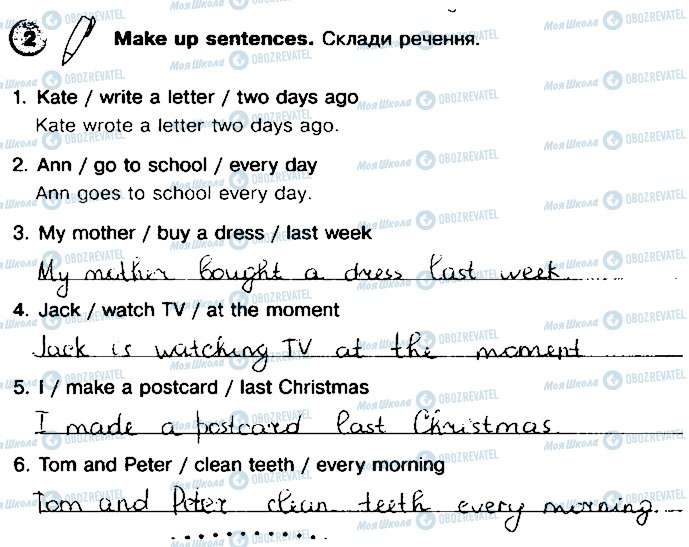 2 Make up sentences. Склади речення.
1. Kate / write a letter / two days ago
Kate wrote a letter two days ago.
2. Ann / go to school / every day
Ann goes to school every day.
3. My mother / buy a dress / last week
My mother bought a dress last week.
4. Jack / watch TV / at the moment
Jack is watching TV at the moment
5. I / make a postcard / last Christmas
I made a postcard last Christmas.
6. Tom and Peter / clean teeth / every morning
Tom and Peter clean teeth every morning.